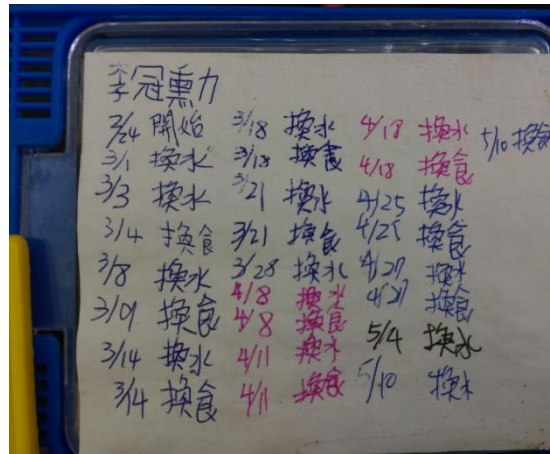 李冠熏力
2/24 開始
3/1 換水
3/3 換水
3/4 換食
3/8 換水
3/01 換食
3/14 換水
3/14 換食
3/18 換水
3/18 換食
3/21 換水
3/21 換食
3/28 換水
4/8 換水
4/8 換食
4/11 換水
4/11 換食
4/18 換水
4/18 換食
4/25 換水
4/25 換食
4/27 換水
4/27 換食
5/4 換水
5/10 換水
5/10 換食